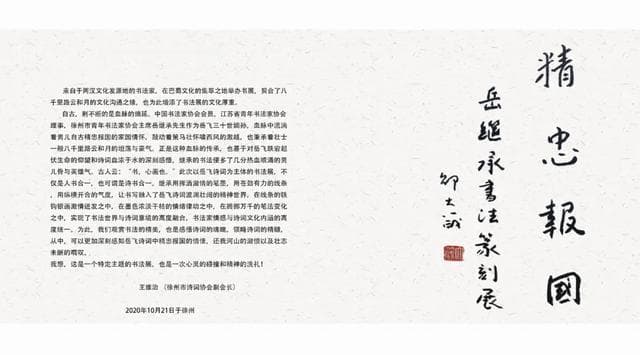 来自于两汉文化发源地的书法家，在巴蜀文化的集萃之地举办书展，契合了八
千里路云和月的文化沟通之缘，也为此增添了书法展的文化厚重。
自古，割不断的是血脉的绵延，中国书法家协会会员，江苏省青年书法家协会
理事，徐州市青年书法家协会主席岳继承先生作为岳飞三十世嫡孙，血脉中流淌
着男儿自古精忠报国的家国情怀，鼓动着策马壮怀啸西风的激越，也秉承着壮士
一般八千里路云和月的坦荡与豪气。正是这种血脉的传承，也基于对岳飞跌宕起
伏生命的仰望和诗词血浓于水的深刻感悟，继承的书法便多了几分热血喷涌的男
儿骨与英雄气。古人云：“书，心画也。”此次以岳飞诗词为主体的书法展，不
仅是人书合一，也可谓是诗书合一，继承用挥洒澎湃的笔墨，用苍劲有力的线条，
用纵横开合的气度，让书写融入了岳飞诗词波澜壮阔的精神世界，在线条的铁
钩银画激情迸发之中，在墨色浓淡干枯的情绪律动之中，在跳掷万千的笔法变化
之中，实现了书法世界与诗词意境的高度融合，书法家情感与诗词文化内涵的高
度统一。为此，我们观赏书法的精美，也是感悟诗词的魂魄，领略诗词的精髓，
从中，可以更加深刻感知岳飞诗词中精忠报国的情愫，还我河山的激愤以及壮志
未酬的嘅叹。
我想，这是一个特定主题的书法展，也是一次心灵的碰撞和精神的洗礼！
王维治 （徐州市诗词协会副会长）
2020年10月21日于徐州
精忠報國
岳繼承書法篆刻展